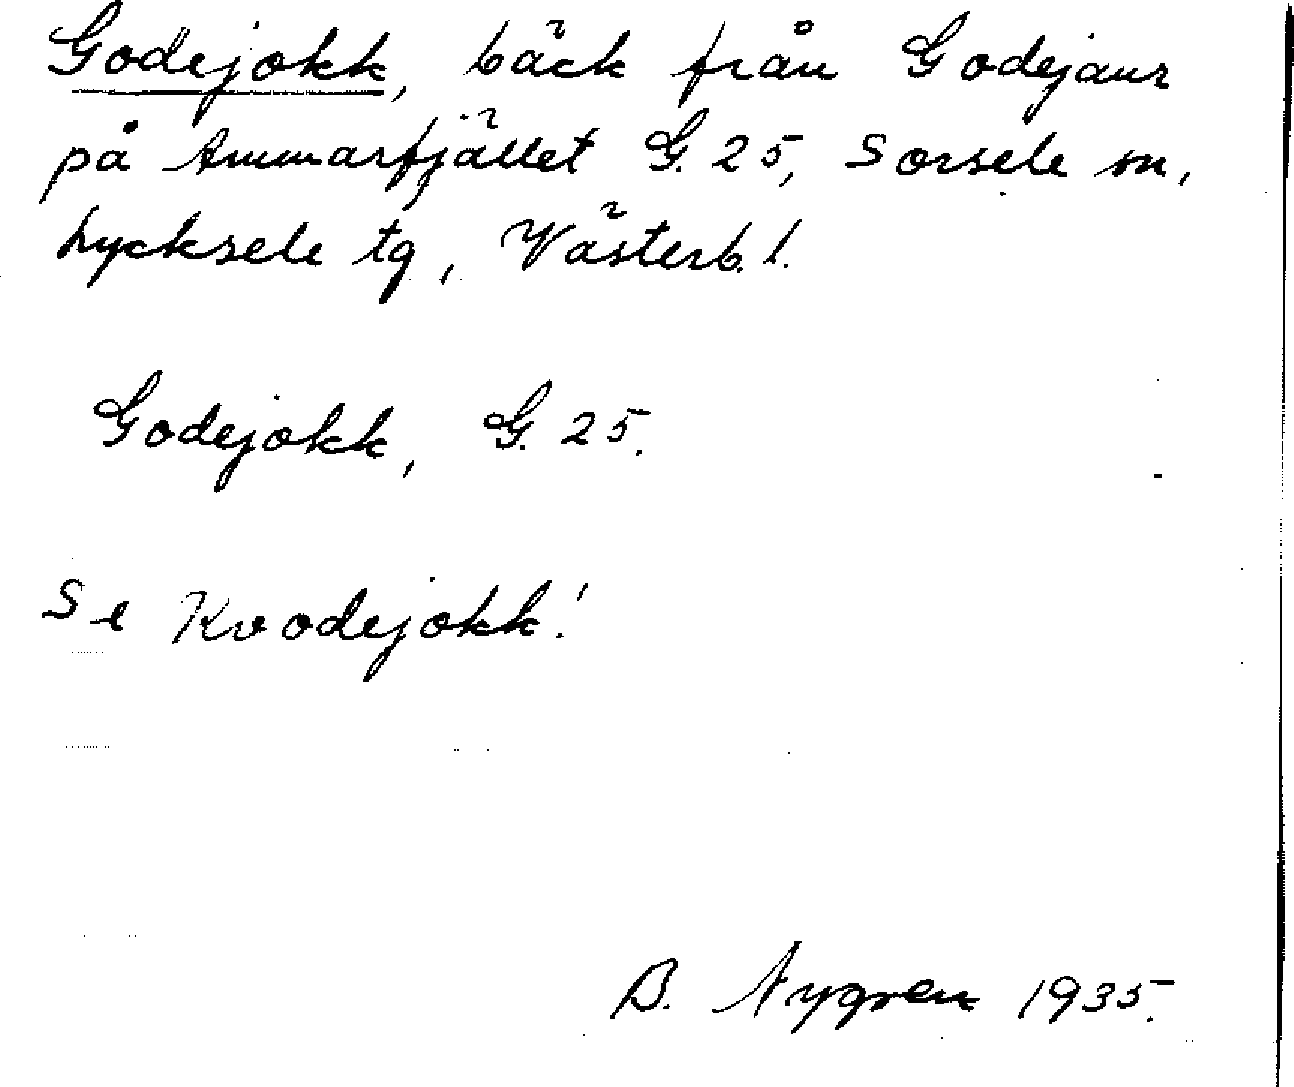 Godejokk, bäck från Godejaur
på Ammarfjället G. 25, Sorsele sn,
Lycksele tg, Västerb. l.
Godejokk, G. 25.
Se Kvodejokk!
B. Nygren 1935.